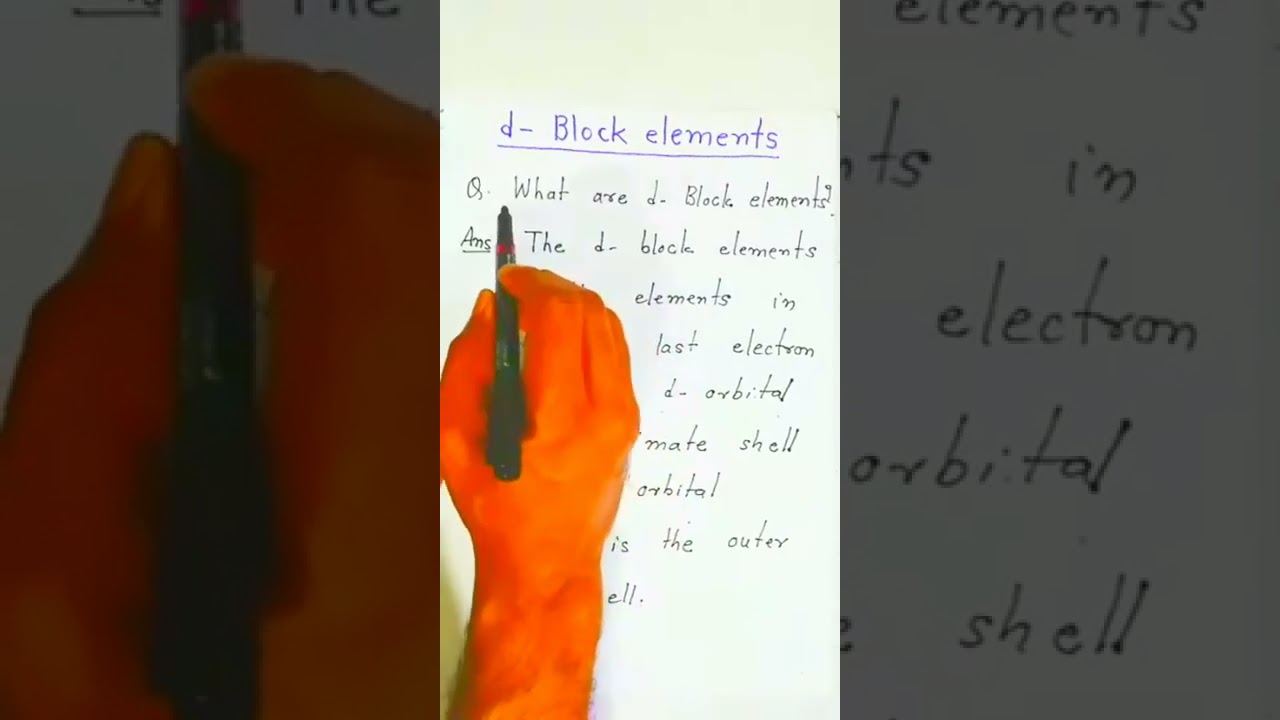 d- Block elements
Q. What are d- Block elements?
Ans The d- block elements
elements in
last electron
d- orbital
mate shell
orbital
is the outer
ell.